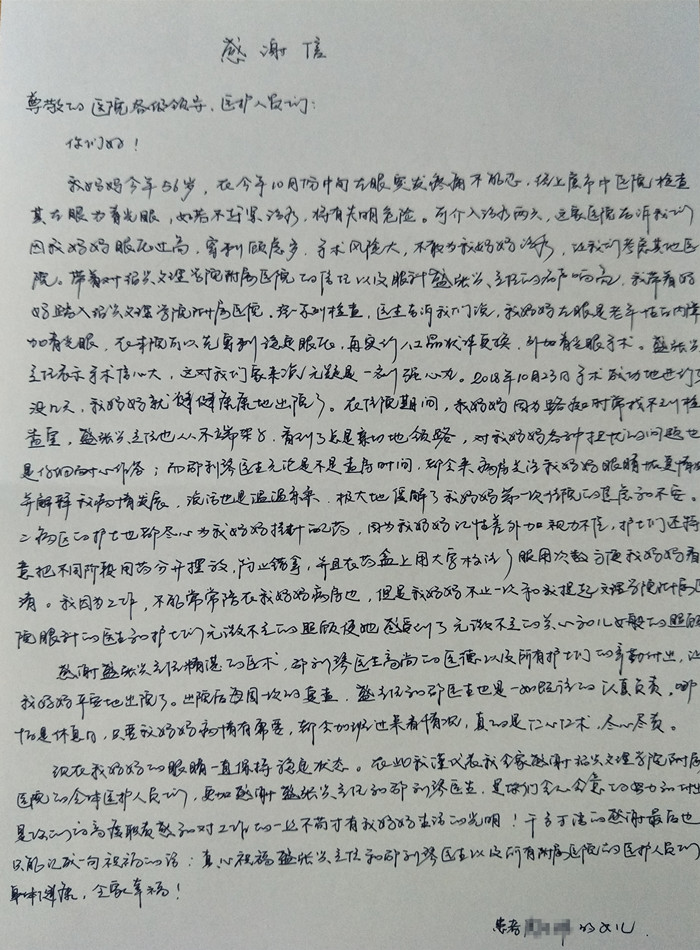 感谢信
尊敬的医院各级领导、医护人员们:
你们好!
我妈妈今年56岁,在今年10月份中旬左眼突发疼痛不能忍,经上虞市中医院检查
其左眼为青光眼,如若不赶紧治疗,将有失明危险。可介入治疗两天,这家医院告诉我们
因我妈妈眼压过高,牵制顾虑多,手术风险大,不敢为我妈妈治疗,让我们考虑其他医
院。带着对绍兴文理学院附属医院的信任以及眼科盛张兴主任的名声响亮,我带着妈
妈踏入绍兴文理学院附属医院。经系列检查,医生告诉我们说,我妈妈左眼是老年性白内障
加青光眼,在来院后以先牵制稳定眼压,再实行人工晶状体更换,外加青光眼手术。盛张兴
主任表示手术信心大,这对我们家来说无疑是一剂强心力。2018年10月23日手术成功地进行了
没几天,我妈妈就健健康康地出院了。在住院期间,我妈妈因为路痴时常找不到检
查室,盛张兴主任也从不端架子,看到了总是亲切地领路,对我妈妈各种担忧的问题也
是仔细耐心作答;而邵利琴医生无论是不是查房时间,都会来病房关注我妈妈眼睛恢复情况
并解释我病情发展,说话也是温温和和,极大地缓解了我妈妈第一次住院的焦虑和不安。
二病区的护士也都尽心为我妈妈挂针配药,因为我妈妈记性差外加视力不佳,护士们还特
意把不同阶段用药分开摆放,防止错拿,并且在药盒上用大字标注了服用次数方便我妈妈看
清。我因为工作,不能常常陪在我妈妈病房边,但是我妈妈不止一次和我提起文理学院附属医
院眼科的医生和护士们无微不至的照顾使她感受到了无微不至的关心和儿女般的照顾
感谢盛张兴主任精湛的医术,邵利琴医生高尚的医德以及所有护士们的辛勤付出,让
我妈妈平安地出院了。出院后每周一次的复查,盛主任和邵医生也是一如既往的认真负责。哪
怕是休息日,只要我妈妈病情有需要,都会加班过来看情况,真的是仁心仁术,尽心尽责。
现在我妈妈的眼睛一直保持稳定状态。在此我谨代表我全家感谢绍兴文理学院附属
医院的全体医护人员们,更加感谢盛张兴主任和邵利琴医生,是你们全心全意的努力和付出
是你们的高度职责感和对工作的一丝不苟才有我妈妈生活的光明!千言万语的感谢最后也
只能汇成一句祝福的话:真心祝福盛张兴主任和邵利琴医生以及所有附属医院的医护人员们
身体健康,全家幸福!
患者 的女儿